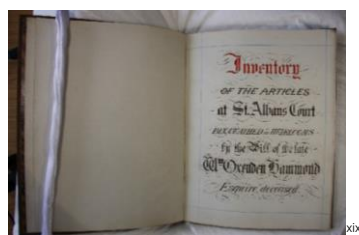 Inventory
OF THE ARTICLES
at St. Albans Court
by the Will of the late
Wm Oxenden Hammond
Esquire, deceased.
xix